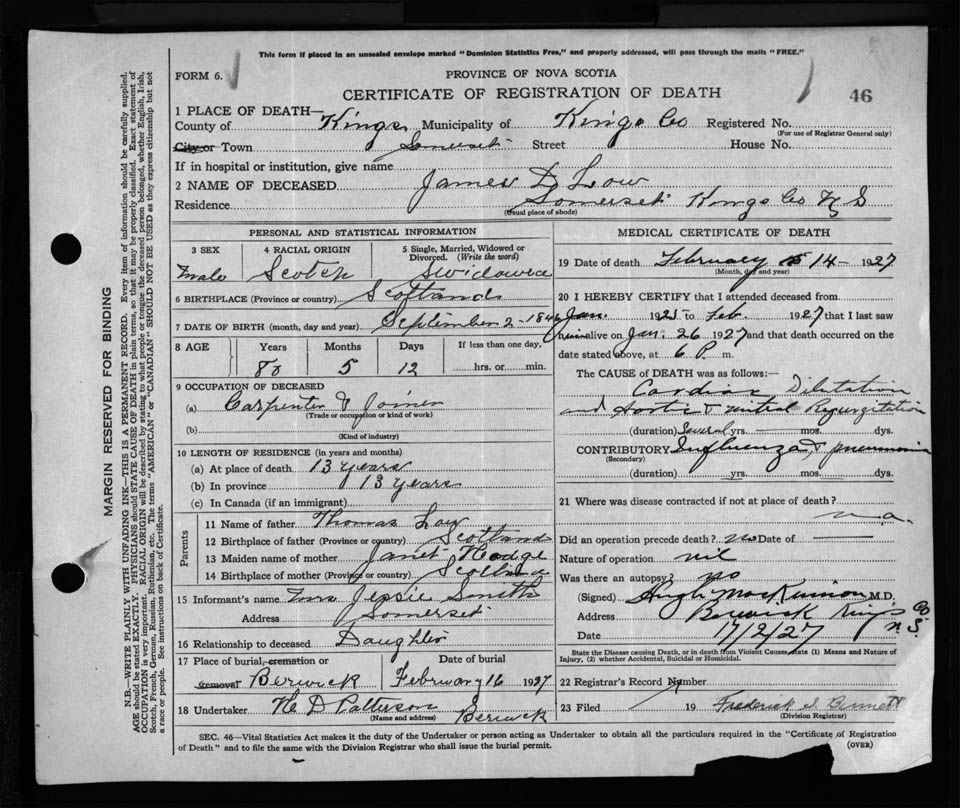 This form if placed in an unsealed envelope marked "Dominion Statistics Free," and properly addressed, will pass through the mails "FREE."
FORM 6.
PROVINCE OF NOVA SCOTIA
CERTIFICATE OF REGISTRATION OF DEATH
46
1 PLACE OF DEATH—
County of Kings Municipality of Kings Co Registered No.
(For use of Registrar General only)
City or Town Somerset Street House No.
If in hospital or institution, give name
2 NAME OF DECEASED James D Low
Residence Somerset Kings Co N S
(Usual place of abode)
PERSONAL AND STATISTICAL INFORMATION
3 SEX 4 RACIAL ORIGIN 5 Single, Married, Widowed or Divorced. (Write the word)
Male Scotch
6 BIRTHPLACE (Province or country) Scotland
7 DATE OF BIRTH (month, day and year) September 2 - 1846
8 AGE Years Months Days If less than one day,
80 5 12 hrs. or min.
9 OCCUPATION OF DECEASED
(a) Carpenter & Joiner
(Trade or occupation or kind of work)
(b)
(Kind of industry)
10 LENGTH OF RESIDENCE (in years and months)
(a) At place of death 13 years
(b) In province 13 years
(c) In Canada (if an immigrant)
Parents
11 Name of father Thomas Low
12 Birthplace of father (Province or country) Scotland
13 Maiden name of mother Janet Hodge
14 Birthplace of mother (Province or country) Scotland
15 Informant's name Mrs Jessie Smith
Address Somerset
16 Relationship to deceased Daughter
17 Place of burial, cremation or removal Berwick
Date of burial February 16 1927
18 Undertaker H D Patterson Berwick
(Name and address)
MEDICAL CERTIFICATE OF DEATH
19 Date of death February 14 - 1927
(Month, day and year)
20 I HEREBY CERTIFY that I attended deceased from
Jan. 1925 to Feb. 1927 that I last saw
him alive on Jan. 26 1927 and that death occurred on the
date stated above, at 6 P. m.
The CAUSE OF DEATH was as follows:—
Cardiac Dilatation
and Aortic & mitral Regurgitation
(duration) Several yrs. mos. dys.
CONTRIBUTORY Influenza & pneumonia
(Secondary)
(duration) yrs. mos. dys.
21 Where was disease contracted if not at place of death?
n.a.
Did an operation precede death? no Date of —
Nature of operation nil
Was there an autopsy? no
(Signed) Hugh MacKinnon M.D.
Address Berwick King's Co N.S.
Date 17/2/27
State the Disease causing Death, or in death from Violent Causes, state (1) Means and Nature of Injury, (2) whether Accidental, Suicidal or Homicidal.
22 Registrar's Record Number
23 Filed 19 Frederick
(Division Registrar)
SEC. 46—Vital Statistics Act makes it the duty of the Undertaker or person acting as Undertaker to obtain all the particulars required in the "Certificate of Registration
of Death" and to file the same with the Division Registrar who shall issue the burial permit.
(OVER)
MARGIN RESERVED FOR BINDING
N.B.—WRITE PLAINLY WITH UNFADING INK—THIS IS A PERMANENT RECORD. Every item of information should be carefully supplied.
AGE should be stated EXACTLY. PHYSICIANS should STATE CAUSE OF DEATH in plain terms, so that it may be properly classified. Exact statement of
OCCUPATION is very important. RACIAL ORIGIN will be described by stating to what people or tongue the deceased person belonged, whether English, Irish,
Scotch, French, German, Russian, Ruthenian, etc. The terms "AMERICAN" or "CANADIAN" SHOULD NOT BE USED as they express citizenship but not
a race or people. See instructions on back of Certificate.